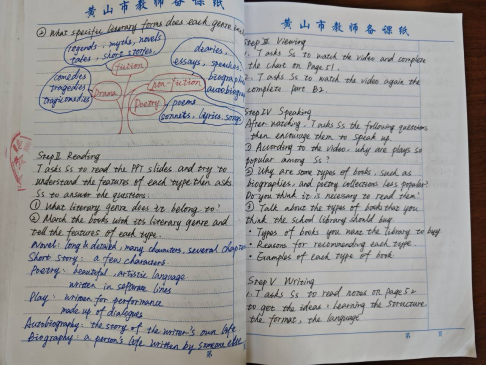 黄山市教师备课纸
② What specific literary forms does each genre
legends, myths, novels
tales, short stories
fiction
diaries,
essays, speeches
biography
autobiogra
non-fiction
comedies
tragedies
tragicomedies
Drama
Poetry
poems
sonnets, lyrics, songs
Step II Reading
T asks Ss to read the PPT slides and try to
understand the features of each type then asks
Ss to answer the questions:
① What literary genre does it belong to?
② March the books with its literary genre and
tell the features of each type
Novel: long & detailed, many characters, several chapters
Short story: a few characters
Poetry: beautiful, artistic language
written in separate lines
Play: written for performance
made up of dialogues
Autobiography: the story of the writer's own life
Biography: a person's life written by someone else
第
黄山市教师备课纸
Step III Viewing
1. T asks Ss to watch the video and complete
the chart on Page 51
2. T asks Ss to watch the video again the
complete Part B2.
Step IV Speaking
After watching, T asks Ss the following questions
then encourage them to speak up.
① According to the video, why are plays so
popular among Ss?
② Why are some types of books, such as
biographies, and poetry collections less popular?
Do you think it is necessary to read them?
③ Talk about the types of book that you
think the school library should buy
• Types of books you want the library to buy
• Reasons for recommending each type
• Examples of each type of book
Step V Writing
1. T asks Ss to read notes on Page 52
to get the ideas, learning the structure
the format, the language
第